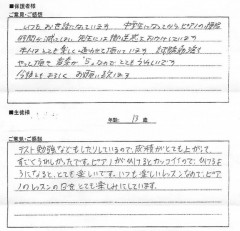 ■保護者様
ご意見・ご感想
いつもお世話になっています 中学生になってからピアノの練習
時間が減ってしまい、先生には御迷惑をおかけしています
本人はとても楽しく通わせて頂いています
やって頂き 音楽が5なのでとてもうれしいです
今後ともよろしくお願い致します
■生徒様
年齢: 13 歳
ご意見・ご感想
テスト勉強などもしたりしているので、成績がとても上がって、
すごくうれしかったです。ピアノがひけるとカッコイイので、ひけるよ
うになると、とても楽しいです。いつも楽しいレッスンなので、ピア
ノのレッスンの日をとても楽しみにしています。